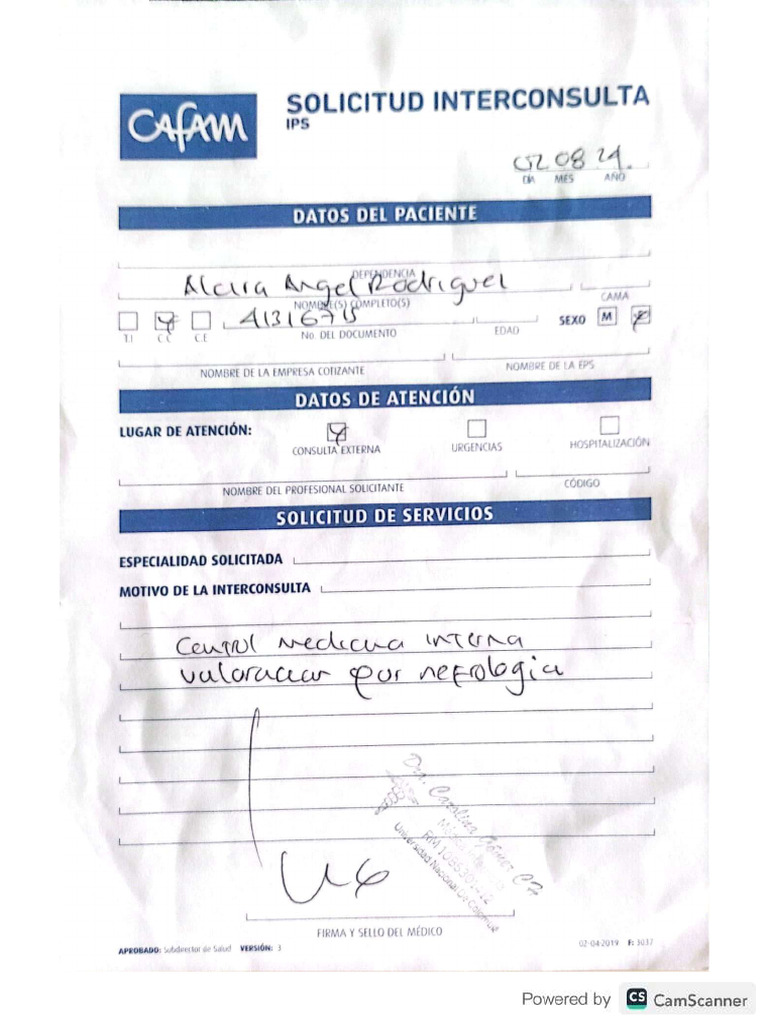 CAFAM
SOLICITUD INTERCONSULTA
IPS
02 08 24.
DÍA MES AÑO
DATOS DEL PACIENTE
DEPENDENCIA
Angel Rodriguez
NOMBRE(S) COMPLETO(S) CAMA
41316715
T.I C.C C.E No. DEL DOCUMENTO EDAD SEXO M
NOMBRE DE LA EMPRESA COTIZANTE NOMBRE DE LA EPS
DATOS DE ATENCIÓN
LUGAR DE ATENCIÓN:
CONSULTA EXTERNA URGENCIAS HOSPITALIZACIÓN
NOMBRE DEL PROFESIONAL SOLICITANTE CÓDIGO
SOLICITUD DE SERVICIOS
ESPECIALIDAD SOLICITADA
MOTIVO DE LA INTERCONSULTA
Control medicina interna
valoracion por nefrologia
Dra. Carolina Gómez
Universidad Nacional De Colombia
FIRMA Y SELLO DEL MÉDICO
APROBADO: Subdirector de Salud VERSIÓN: 3 02-04-2019 F: 3037
Powered by CS CamScanner